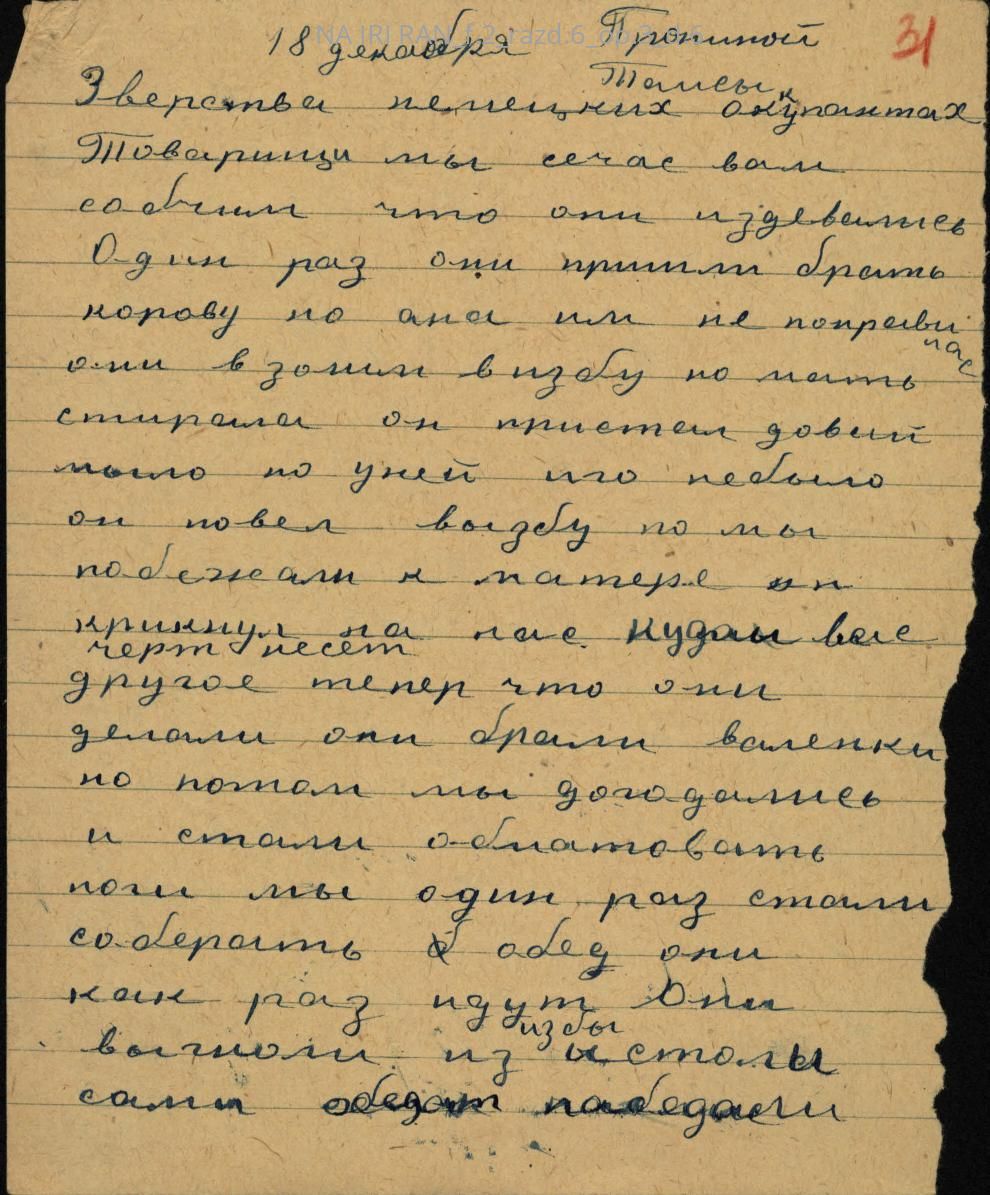 18 декабря Прониной 31
Таисы
Зверства немецких окупантах
Товарищи мы сечас вам
собчим что они издевались
Один раз они пришли брать
корову но ана им не понрави
лас
они взошли визбу но мать
стирала он пристал довай
мыло но уней иго небыло
он повел вызбу но мы
побежали к матере он
крикнул на нас куда вас
черт несет
другое тепер что они
делали они брали валенки
но потом мы догодались
и стали обматовать
ноги мы один раз стали
соберать обед они
как раз идут Они
избы
выгноли из и стали
сами обедат пабедали